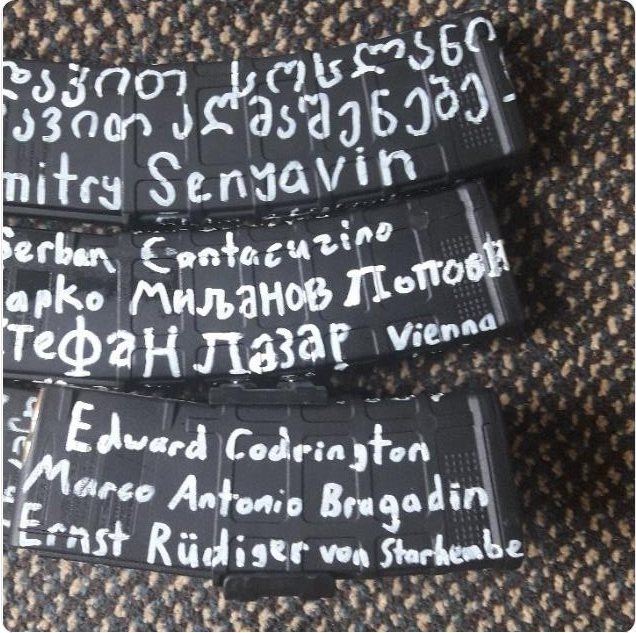 დავით სოსლანი
ავით აღმაშენებე
mitry Senyavin
Serban Cantacuzino
арко Миљанов Попови
тефан Лазар Vienna
Edward Codrington
Marco Antonio Bragadin
Ernst Rüdiger von Starhembe